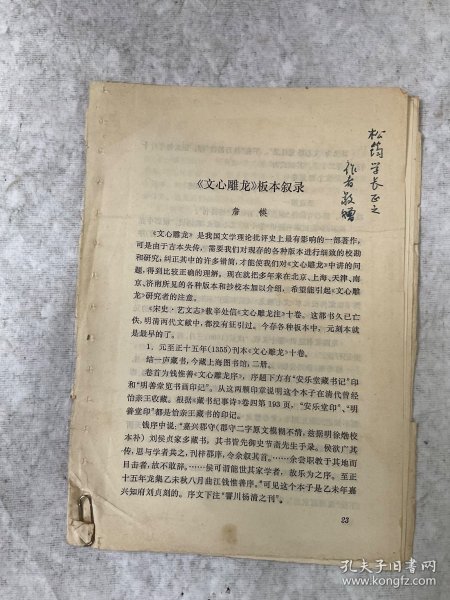 《文心雕龙》板本叙录
詹 锳
《文心雕龙》是我国文学理论批评史上最有影响的一部著作，
可是由于古本失传，需要我们对现存的各种版本进行细致的校勘
和研究，纠正其中的许多错简，才能使我们对《文心雕龙》中讲的问
题，得到比较正确的理解。现在就把多年来在北京、上海、天津、南
京、济南所见的各种版本和抄校本加以介绍，希望能引起《文心雕
龙》研究者的注意。
《宋史·艺文志》载辛处信《文心雕龙注》十卷。这部书久已亡
佚，明清两代文献中，都没有征引过。今存各种版本中，元刻本就
是最早的了。
1．元至正十五年(1355)刊本《文心雕龙》十卷。
结一庐藏书，今藏上海图书馆，二册。
卷首为钱惟善《文心雕龙序》，序题下方有“安乐堂藏书记”印
和“明善堂览书画印记”。从这两颗印章说明这个本子在清代曾经
怡亲王收藏。根据《藏书纪事诗》卷四第193页，“安乐堂印”、“明
善堂印”都是怡亲王藏书的印记。
钱序中说：“嘉兴郡守(郡守二字原文模糊不清，兹据明徐𤊹校
本补)刘侯贞家多藏书，其书皆先御史节斋先生手录。侯欲广其
传，思与学者共之，刊梓郡庠，令余叙其首。……余尝职教于其地而
目击者，故不敢辞。……侯可谓能世其家学者，故乐为之序。至正
十五年龙集乙未秋八月曲江钱惟善序。”可见这个本子是乙未年嘉
兴知府刘贞刻的。序文下注“𬩽川杨清之刊”。
23
松筠学长正之
作者敬赠
孔夫子旧书网
www.kongfz.com